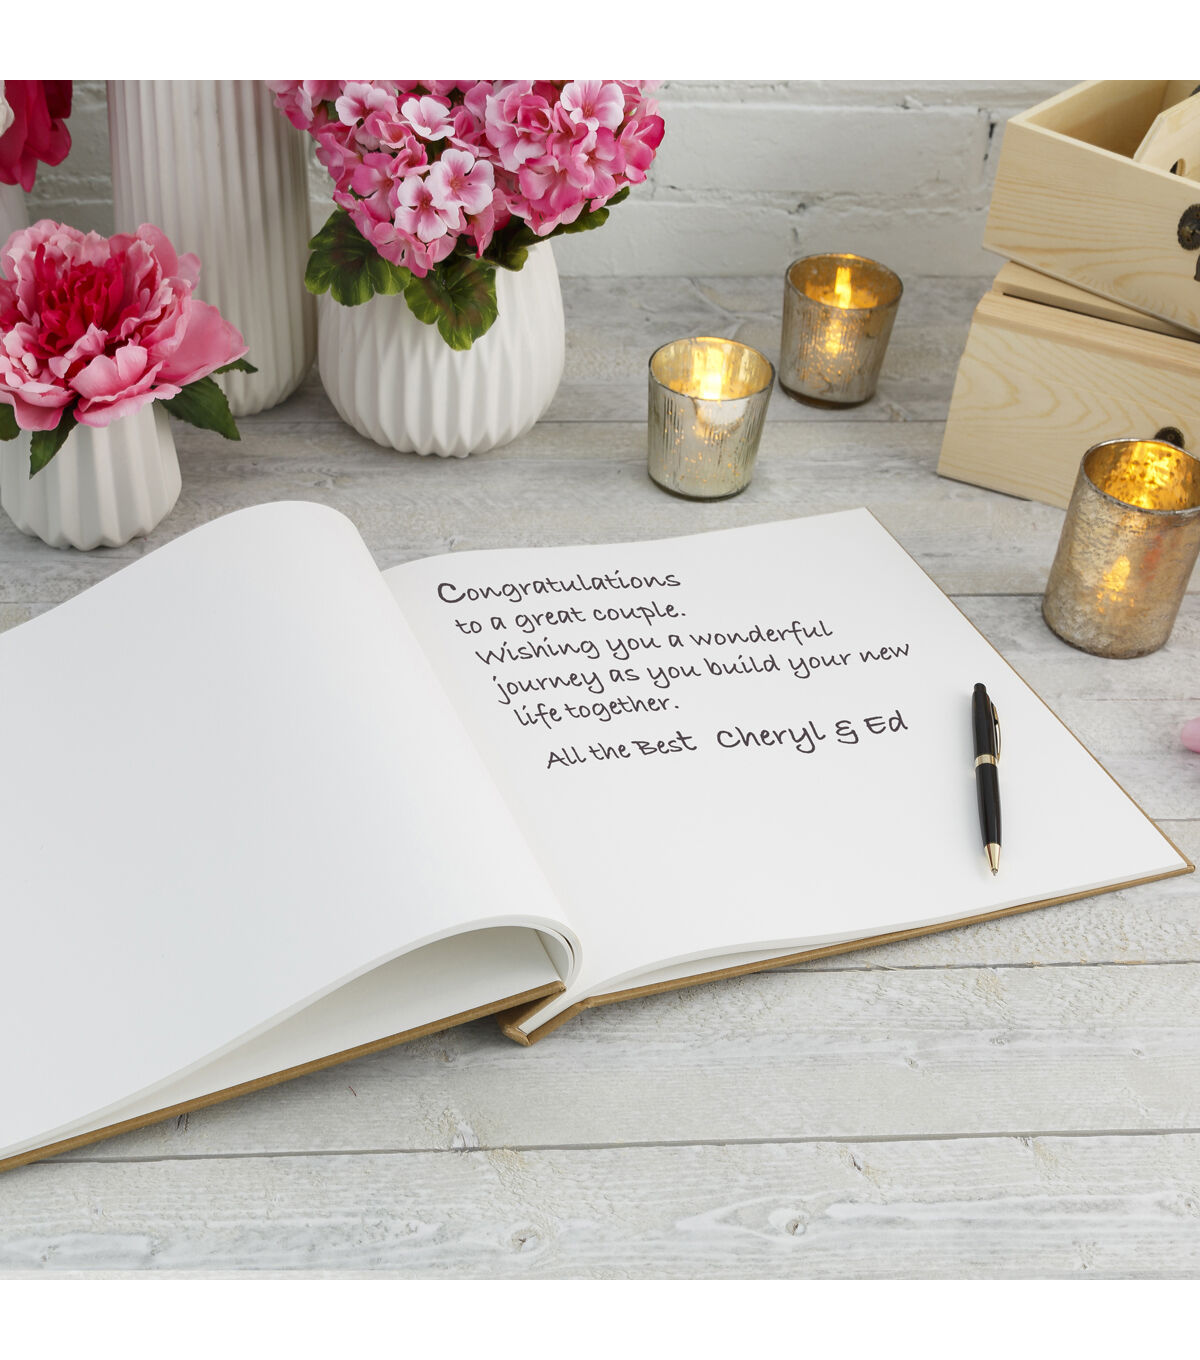 Congratulations
to a great couple.
Wishing you a wonderful
journey as you build your new
life together.
All the Best Cheryl & Ed